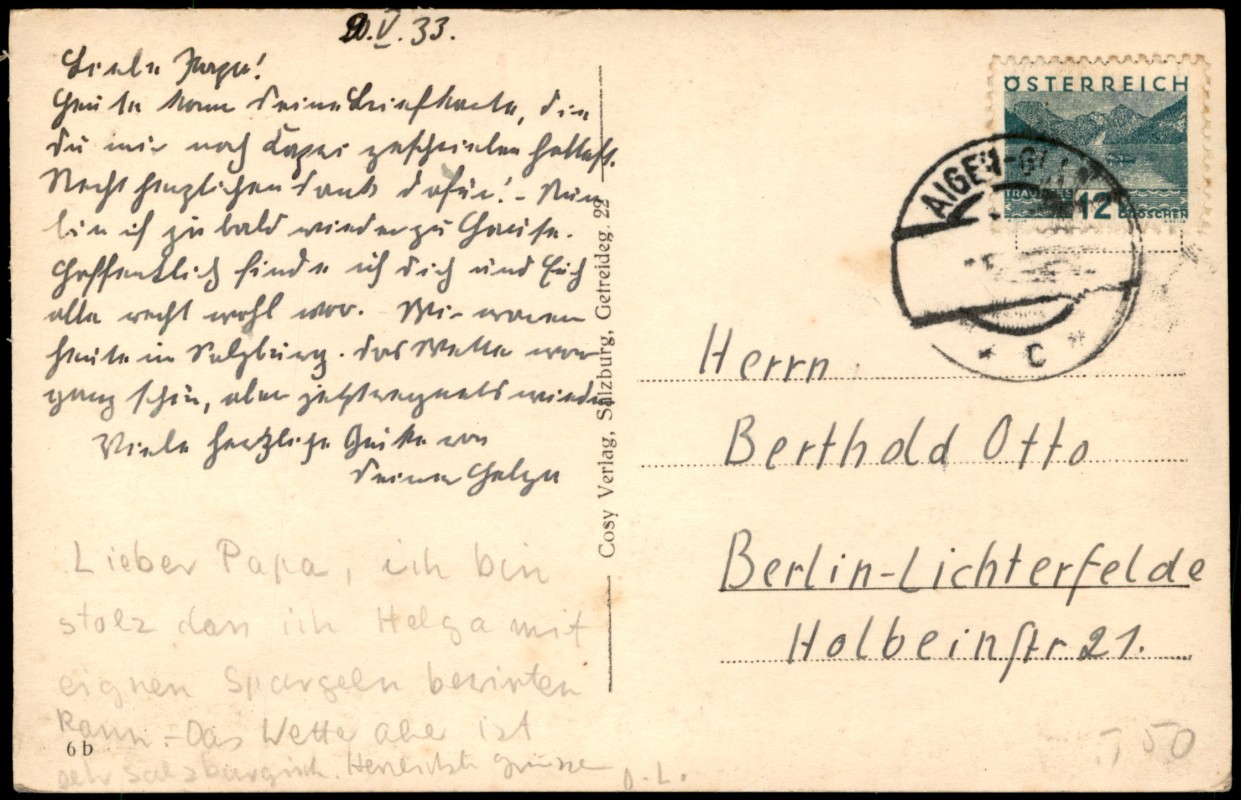 20.V.33.
Liebe Papa!
Heute kam Deine Briefkarte, die
Du mir nach Capri geschrieben hattest.
Recht herzlichen Dank dafür! - Nun
bin ich ja bald wieder zu Hause.
Hoffentlich finde ich Dich und Euch
alle recht wohl vor. Wir waren
heute in Salzburg. Das Wetter war
ganz schön, aber jetzt regnet es wieder.
Viele herzliche Grüße von
Deiner Helga
Lieber Papa, ich bin
stolz dass ich Helga mit
eignen Spargeln bewirten
kann. - Das Wetter aber ist
sehr salzburgisch. Herzlichste Grüsse
D. L.
6b
Cosy Verlag, Salzburg, Getreideg. 22
ÖSTERREICH
12 GROSCHEN
AIGEN-GL
* C *
Herrn
Berthold Otto
Berlin-Lichterfelde
Holbeinstr 21.
50